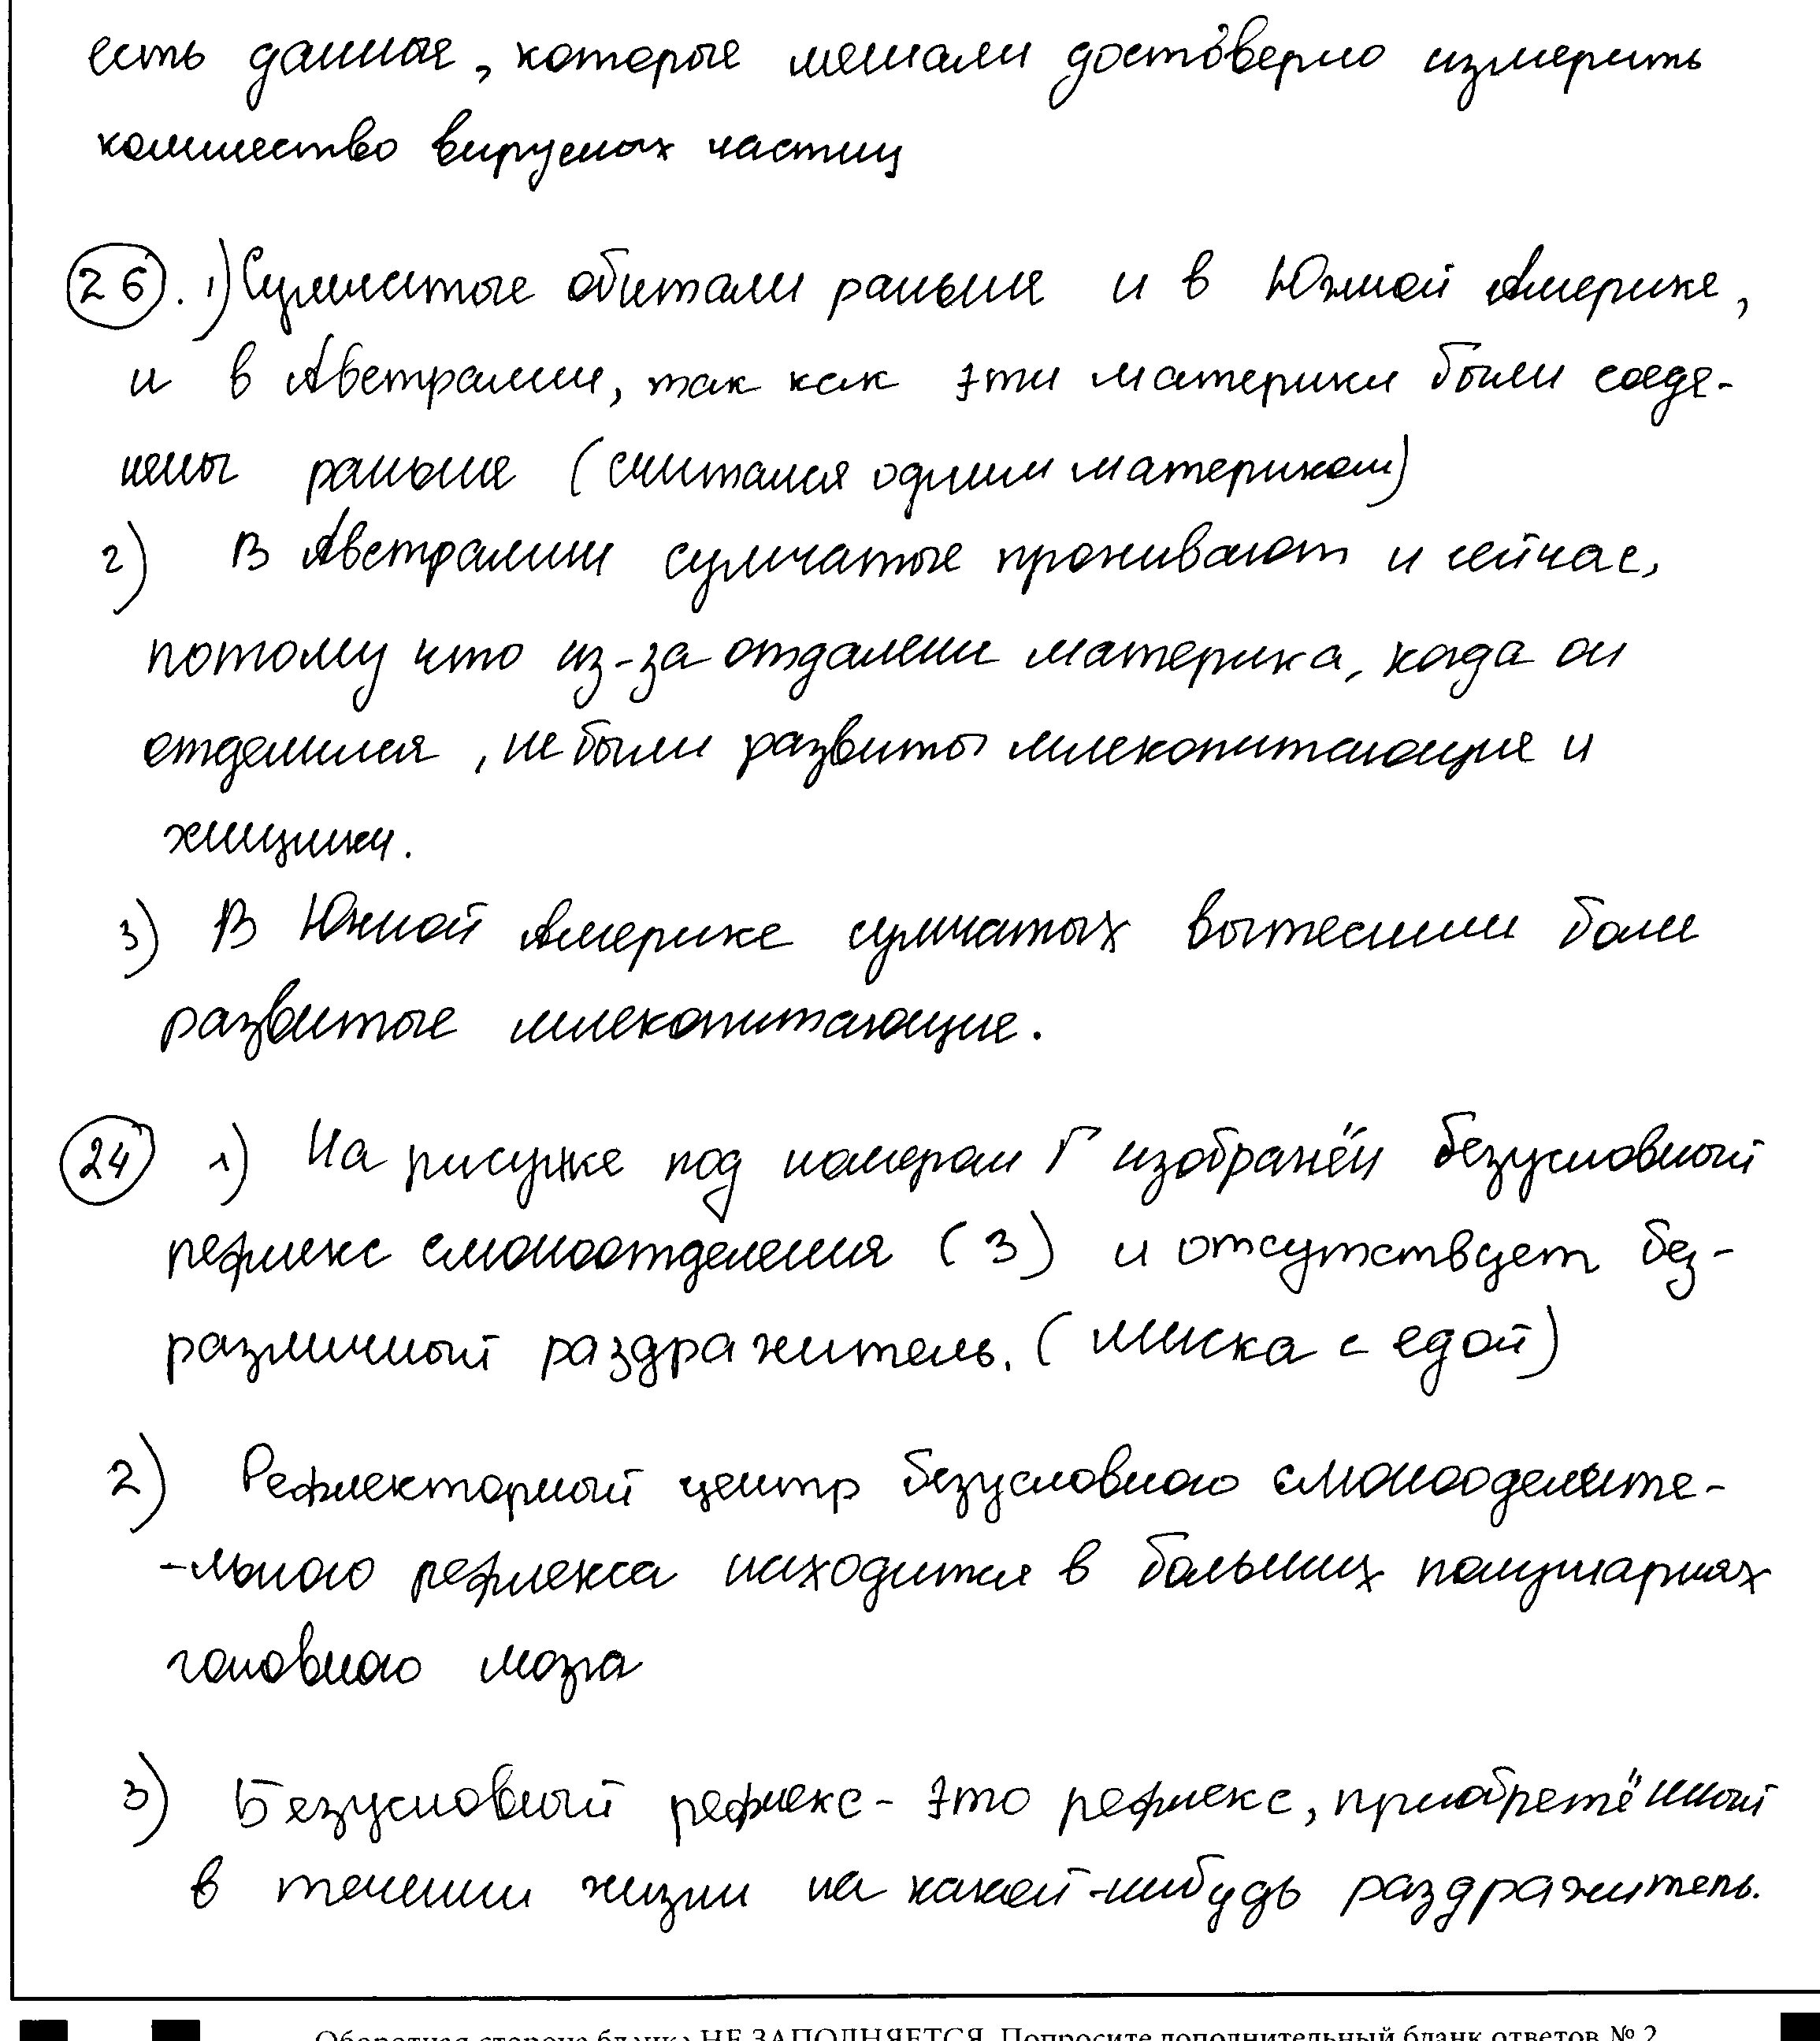 есть данные, которые мешали достоверно измерить
количество вирусных частиц
26. 1) Сумчатые обитали раньше и в Южной Америке,
и в Австралии, так как эти материки были соеде-
нены раньше (считался одним материком)
2) В Австралии сумчатые проживают и сейчас,
потому что из-за отдалени материка, когда он
отделился, не были развиты млекопитающие и
хищники.
3) В Южной Америке сумчатых вытеснили боле
развитые млекопитающие.
24 1) На рисунке под номером Г изображён безусловный
рефлекс слюноотделения (3) и отсутствует без-
различный раздражитель. (миска с едой)
2) Рефлекторный центр безусловного слюнооделите-
-льного рефлекса находится в больших полушариях
головного мозга
3) Безусловный рефлекс - это рефлекс, приобретённый
в течении жизни на какой-нибудь раздражитель.
Оборотная сторона бланка НЕ ЗАПОЛНЯЕТСЯ. Попросите дополнительный бланк ответов № 2